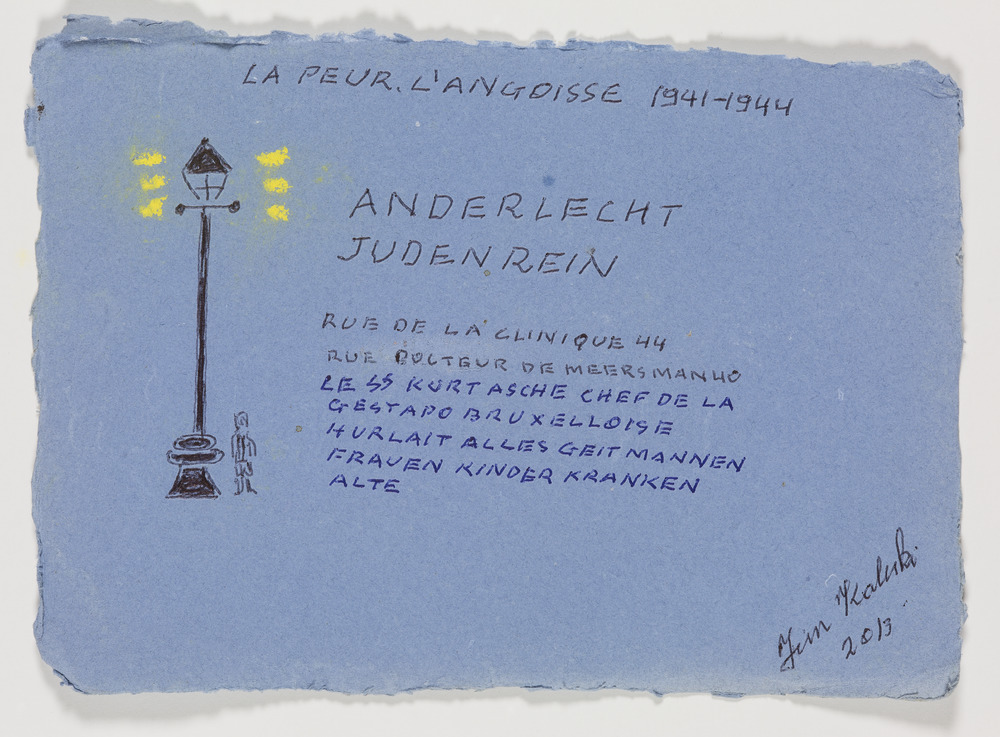 LA PEUR. L'ANGOISSE 1941-1944
ANDERLECHT
JUDENREIN
RUE DE LA CLINIQUE 44
RUE DOCTEUR DE MEERSMAN 40
LE SS KURT ASCHE CHEF DE LA
GESTAPO BRUXELLOISE
HURLAIT ALLES GEIT MANNEN
FRAUEN KINDER KRANKEN
ALTE
Jim Kaliski
2013